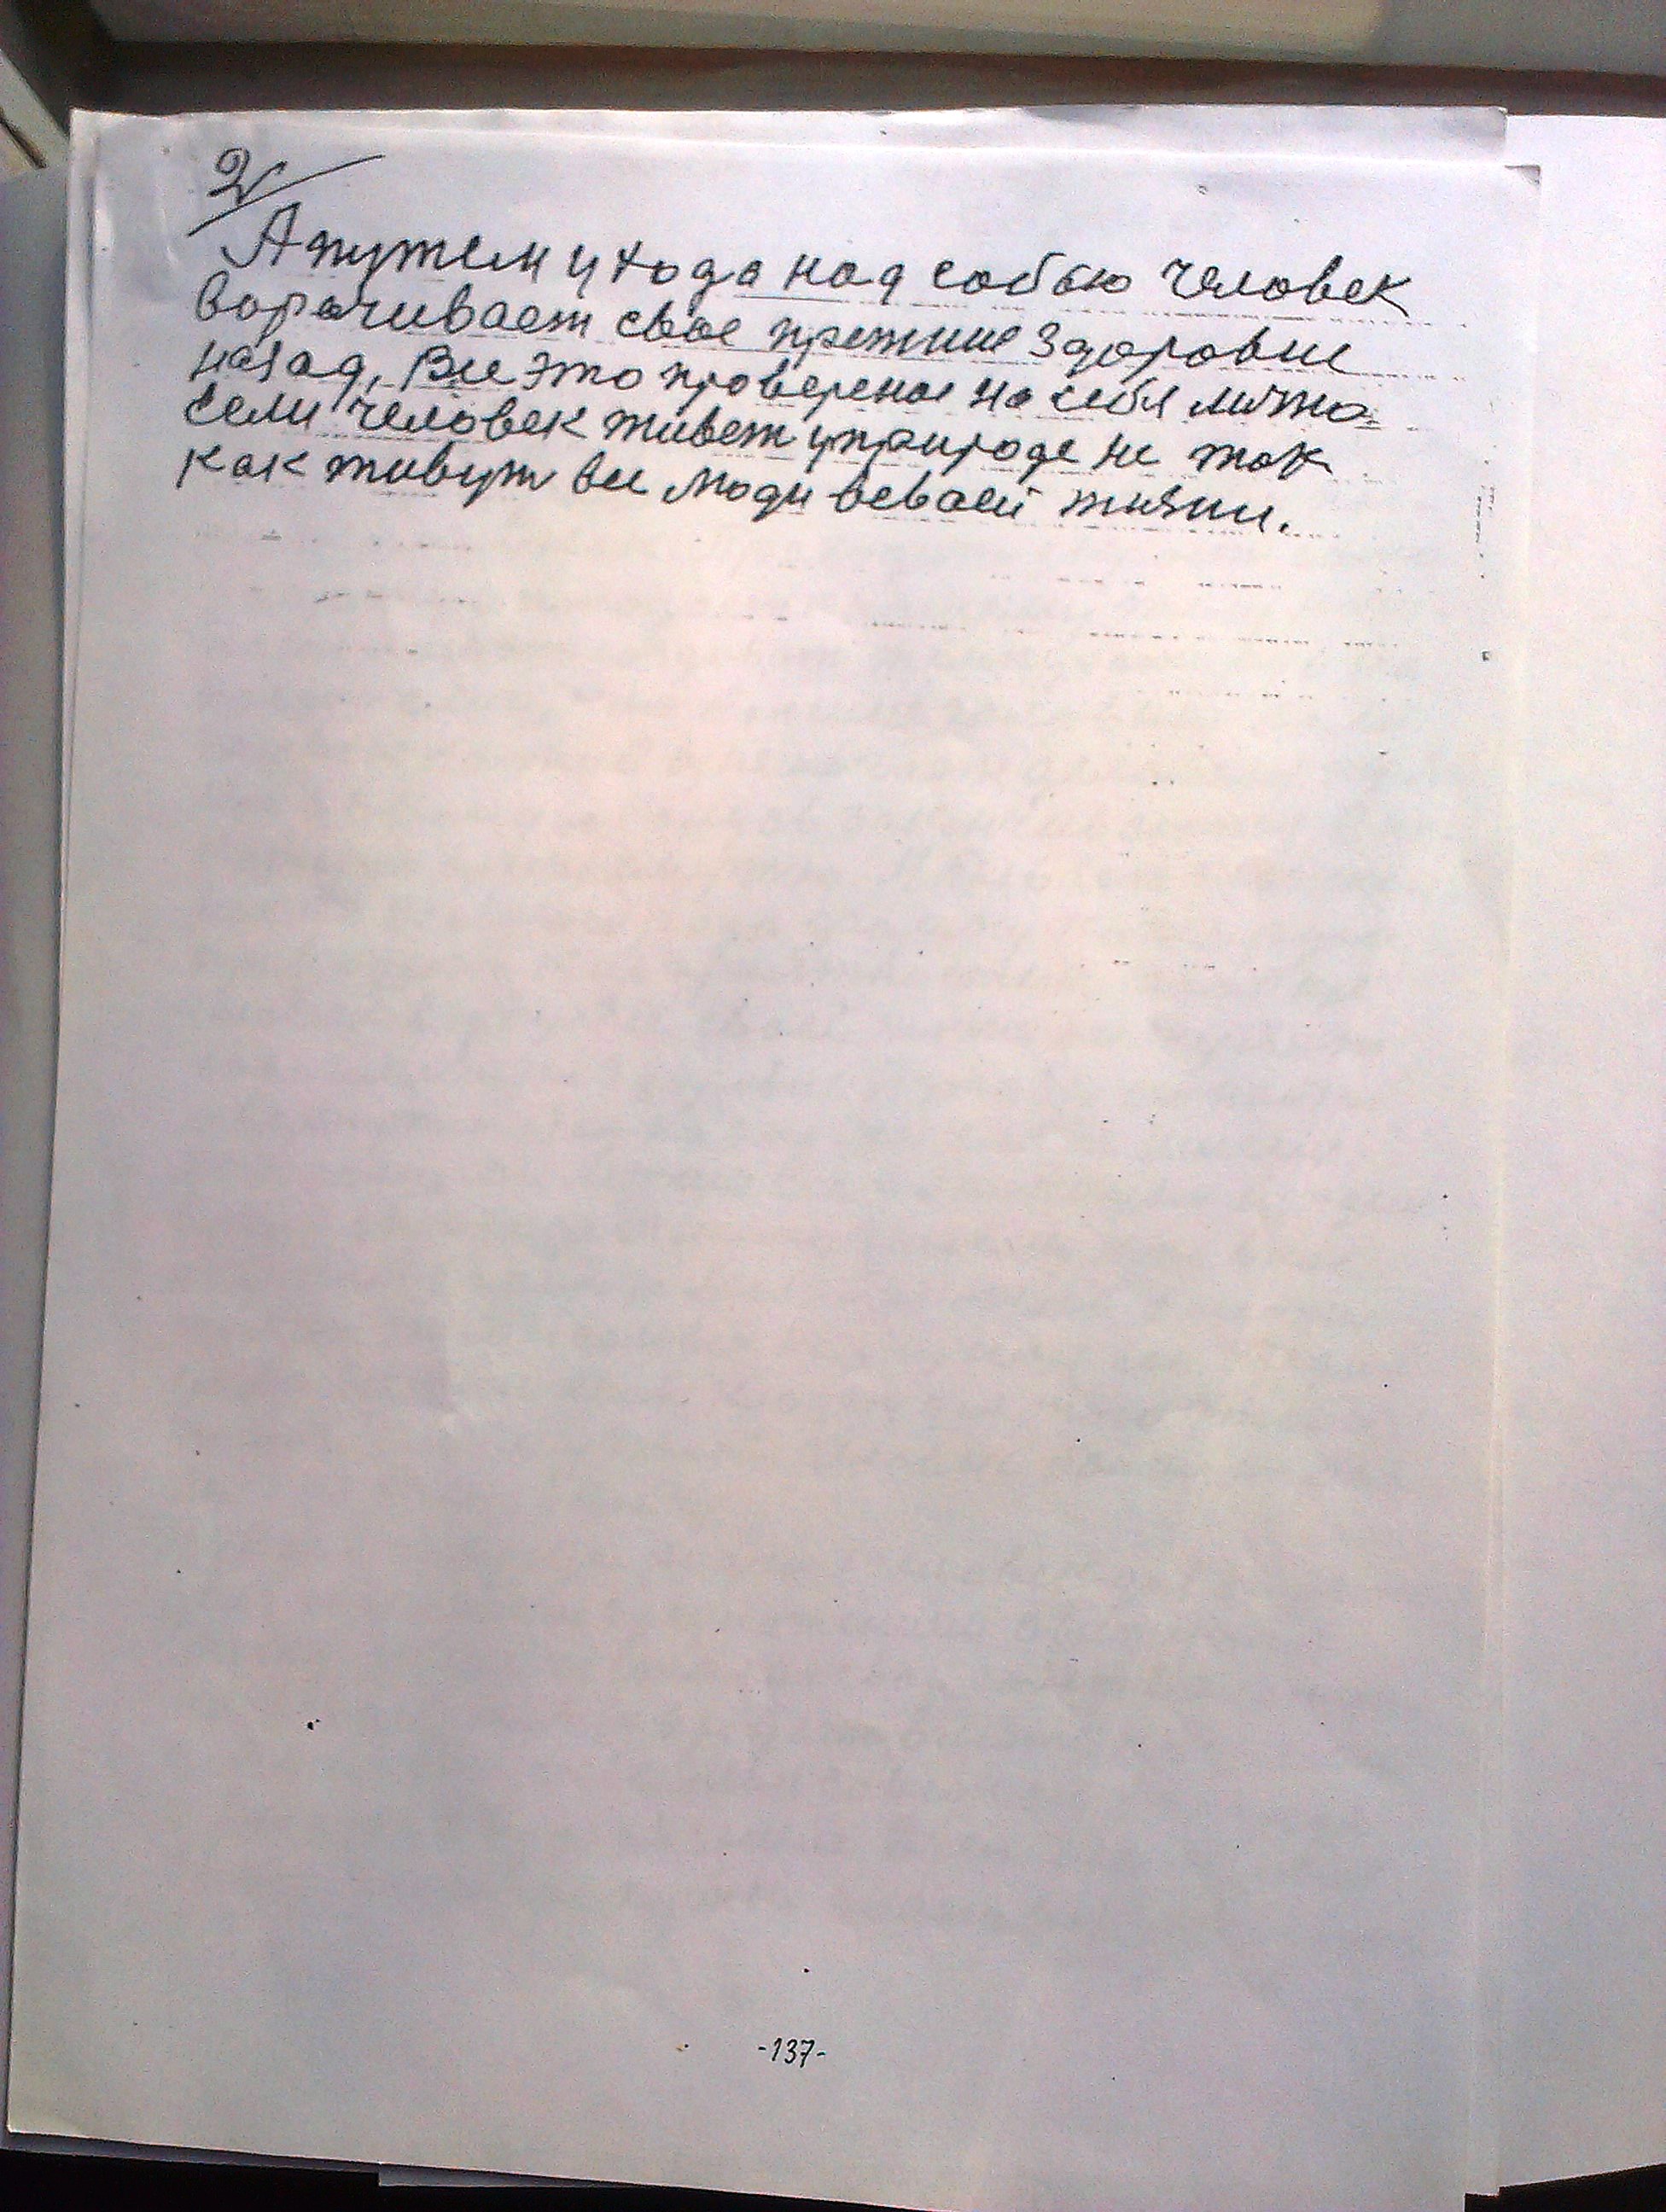 2/
А путем ухода над собью человек
ворачивает свое прежние здоровие
назад, Все это проверенае на себя лично.
Если человек живет уприроде не так
как живут все люди всваей жизни.
-137-